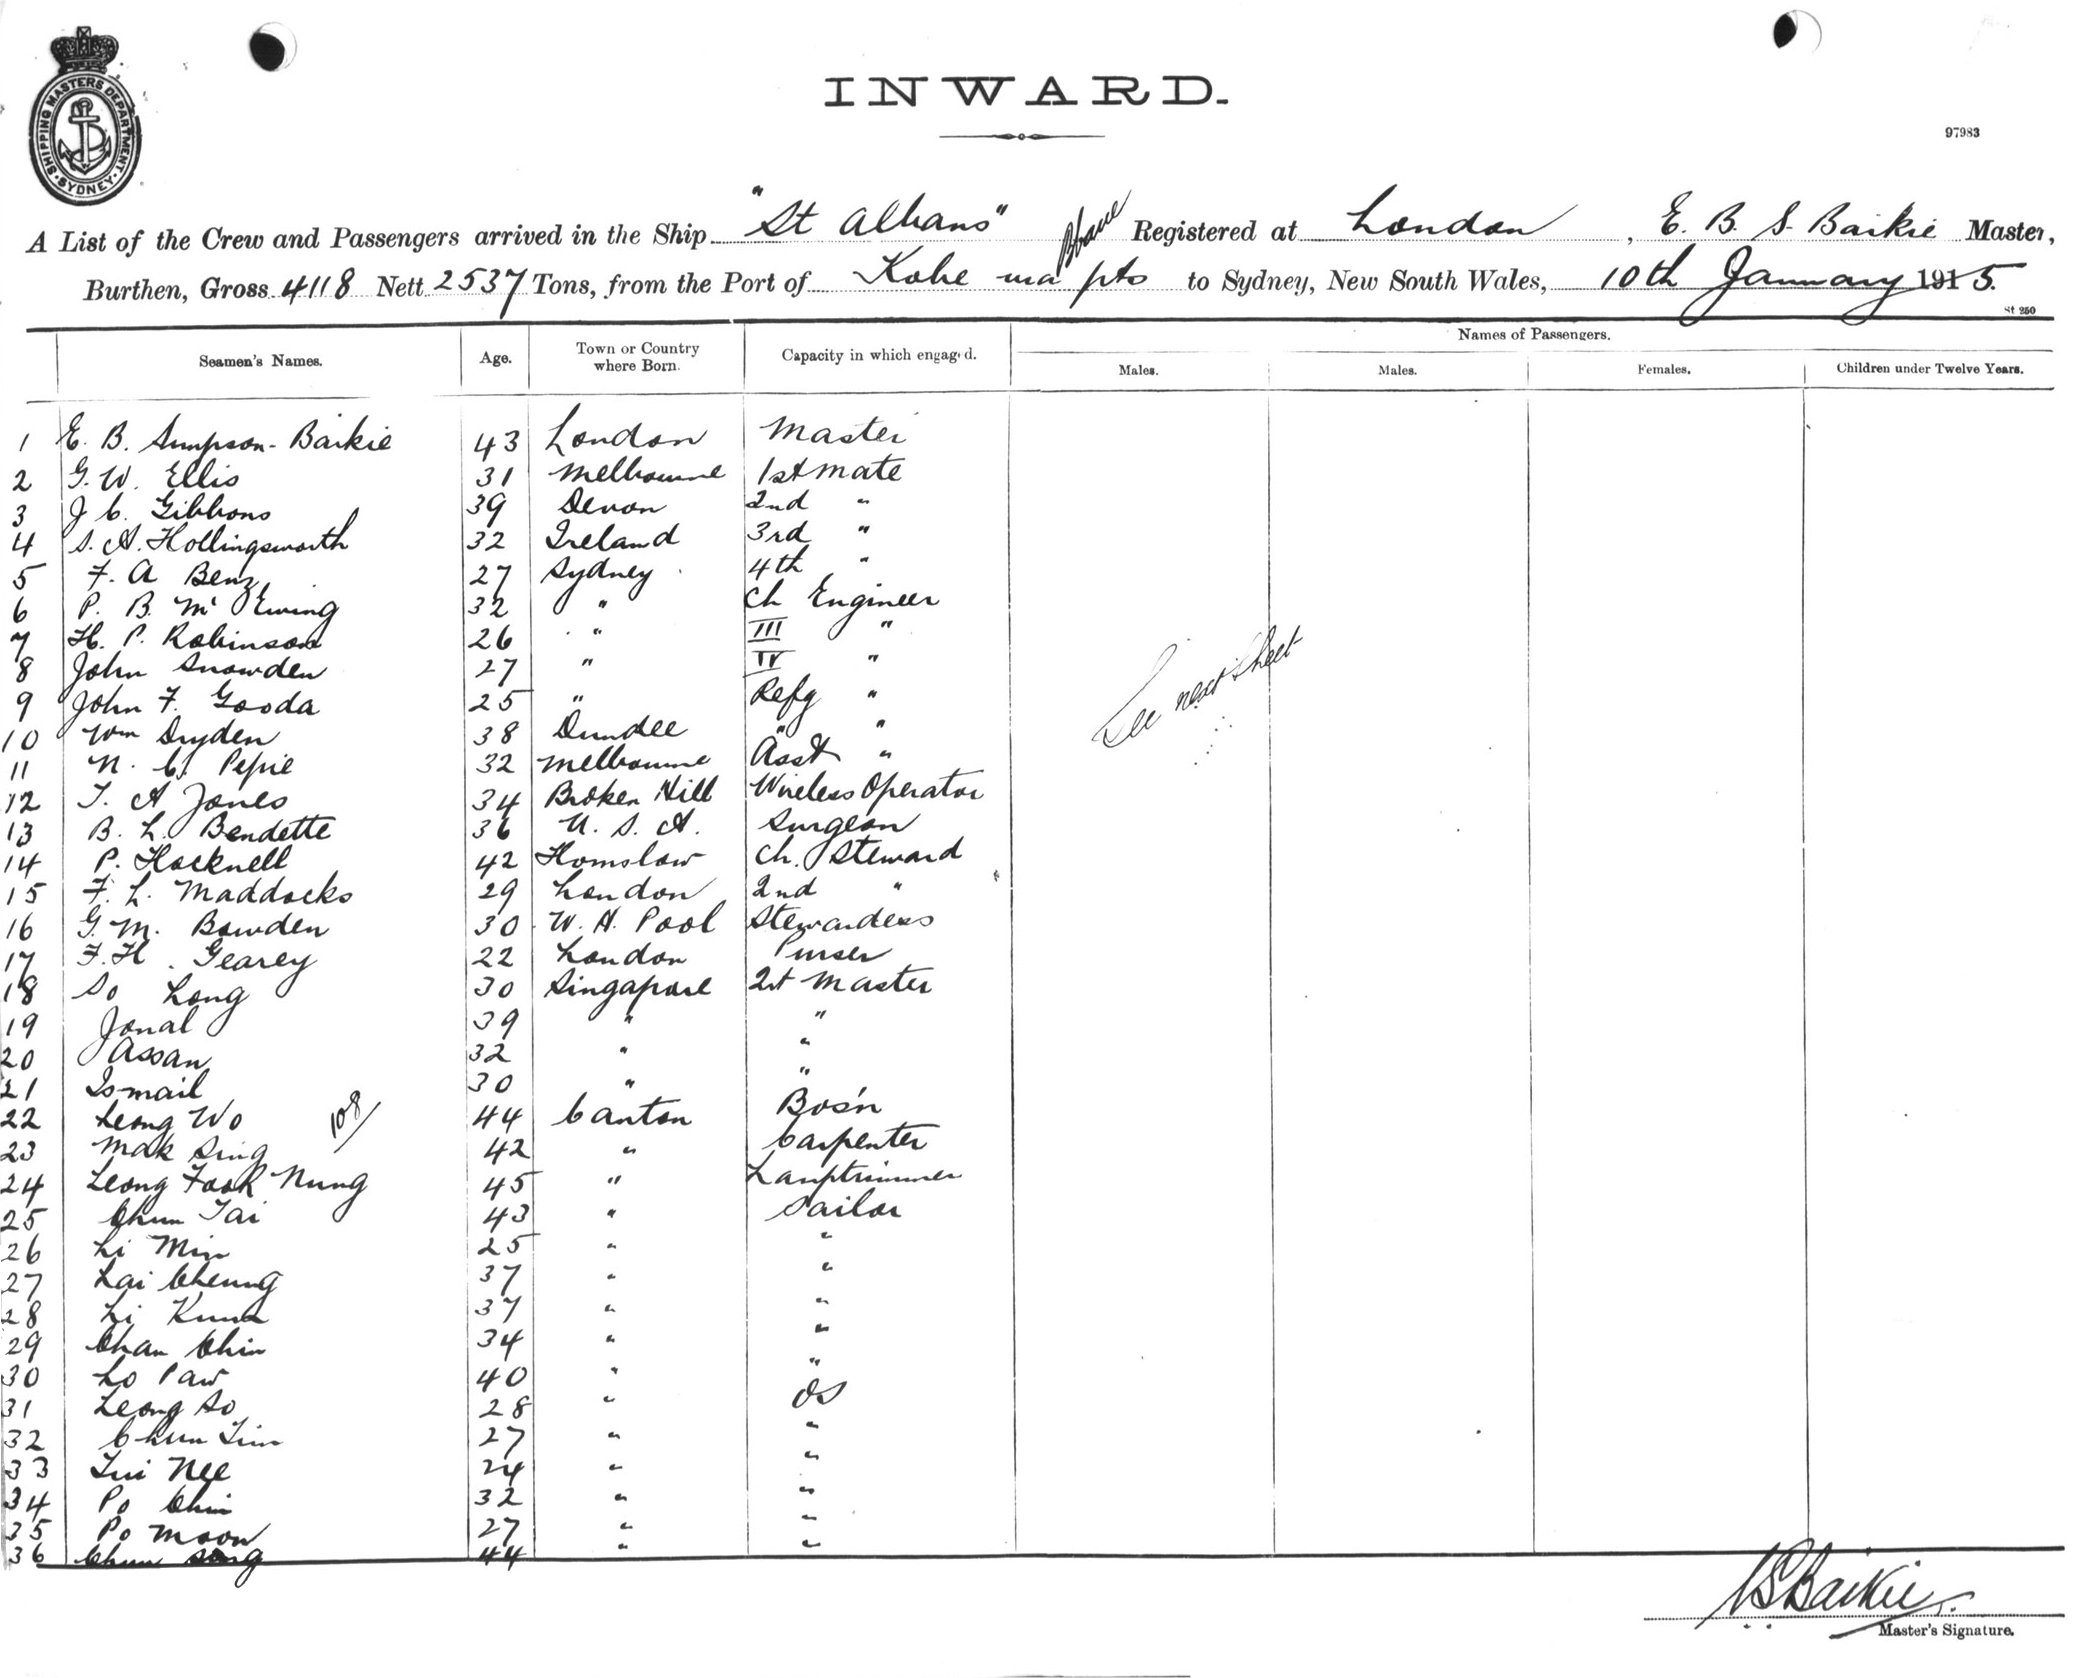 SHIPPING MASTERS DEPARTMENT. SYDNEY.
INWARD.
97983
A List of the Crew and Passengers arrived in the Ship "St Albans" Registered at London, E. B. S. Baikie Master,
Burthen, Gross 4118 Nett 2537 Tons, from the Port of Kobe via pts to Sydney, New South Wales, 10th January 1915.
St 250
Seamen's Names. Age. Town or Country where Born. Capacity in which engaged. Names of Passengers.
Males. Males. Females. Children under Twelve Years.
1 E. B. Simpson-Baikie 43 London Master
2 G. W. Ellis 31 Melbourne 1st Mate
3 J C. Gibbons 39 Devon 2nd "
4 S. A. Hollingsworth 32 Ireland 3rd "
5 F. A Benz 27 Sydney 4th "
6 P. B. Mc Ewing 32 " Ch Engineer
7 H. P. Robinson 26 " III "
8 John Snowden 27 " IV "
9 John F. Gooda 25 " Refg "
10 Wm Dryden 38 Dundee " "
11 N. C. Pepie 32 Melbourne Asst "
12 T. A Jones 34 Broken Hill Wireless Operator
13 B. L. Bendette 36 U. S. A. Surgeon
14 P. Hocknell 42 Homslow Ch. Steward
15 F. L. Maddocks 29 London 2nd "
16 G. M. Bowden 30 W. H. Pool Stewardess
17 F. H. Gearey 22 London Purser
18 So Long 30 Singapore 2r Master
19 Jonal 39 " "
20 Assan 32 " "
21 Ismail 30 " "
22 Leong Wo 44 Canton Bos'n
23 Mak Sing 42 " Carpenter
24 Leong Fook Nung 45 " Lamptrimmer
25 Chun Tai 43 " Sailor
26 Li Min 25 " "
27 Lai Cheung 37 " "
28 Li Kum 37 " "
29 Chan Chin 34 " "
30 Lo Paw 40 " "
31 Leong So 28 " OS
32 Chun Tim 27 " "
33 Tui Nee 24 " "
34 Po Chin 32 " "
35 Po Moon 27 " "
36 Chun Song 44 " "
108/
See next Sheet
Baikie
Master's Signature.